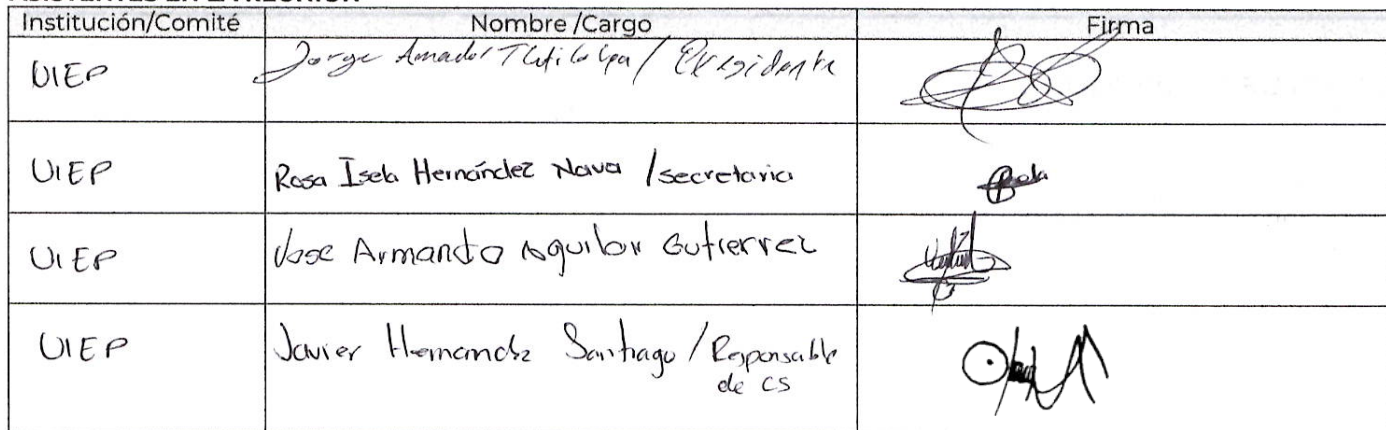 Institución/Comité Nombre/Cargo Firma
UIEP Jorge Amador / Presidente
UIEP Rosa Isela Hernández Nava /secretaria
UIEP Jose Armando Aguilar Gutierrez
UIEP Javier Hernandez Santiago / Responsable
de CS